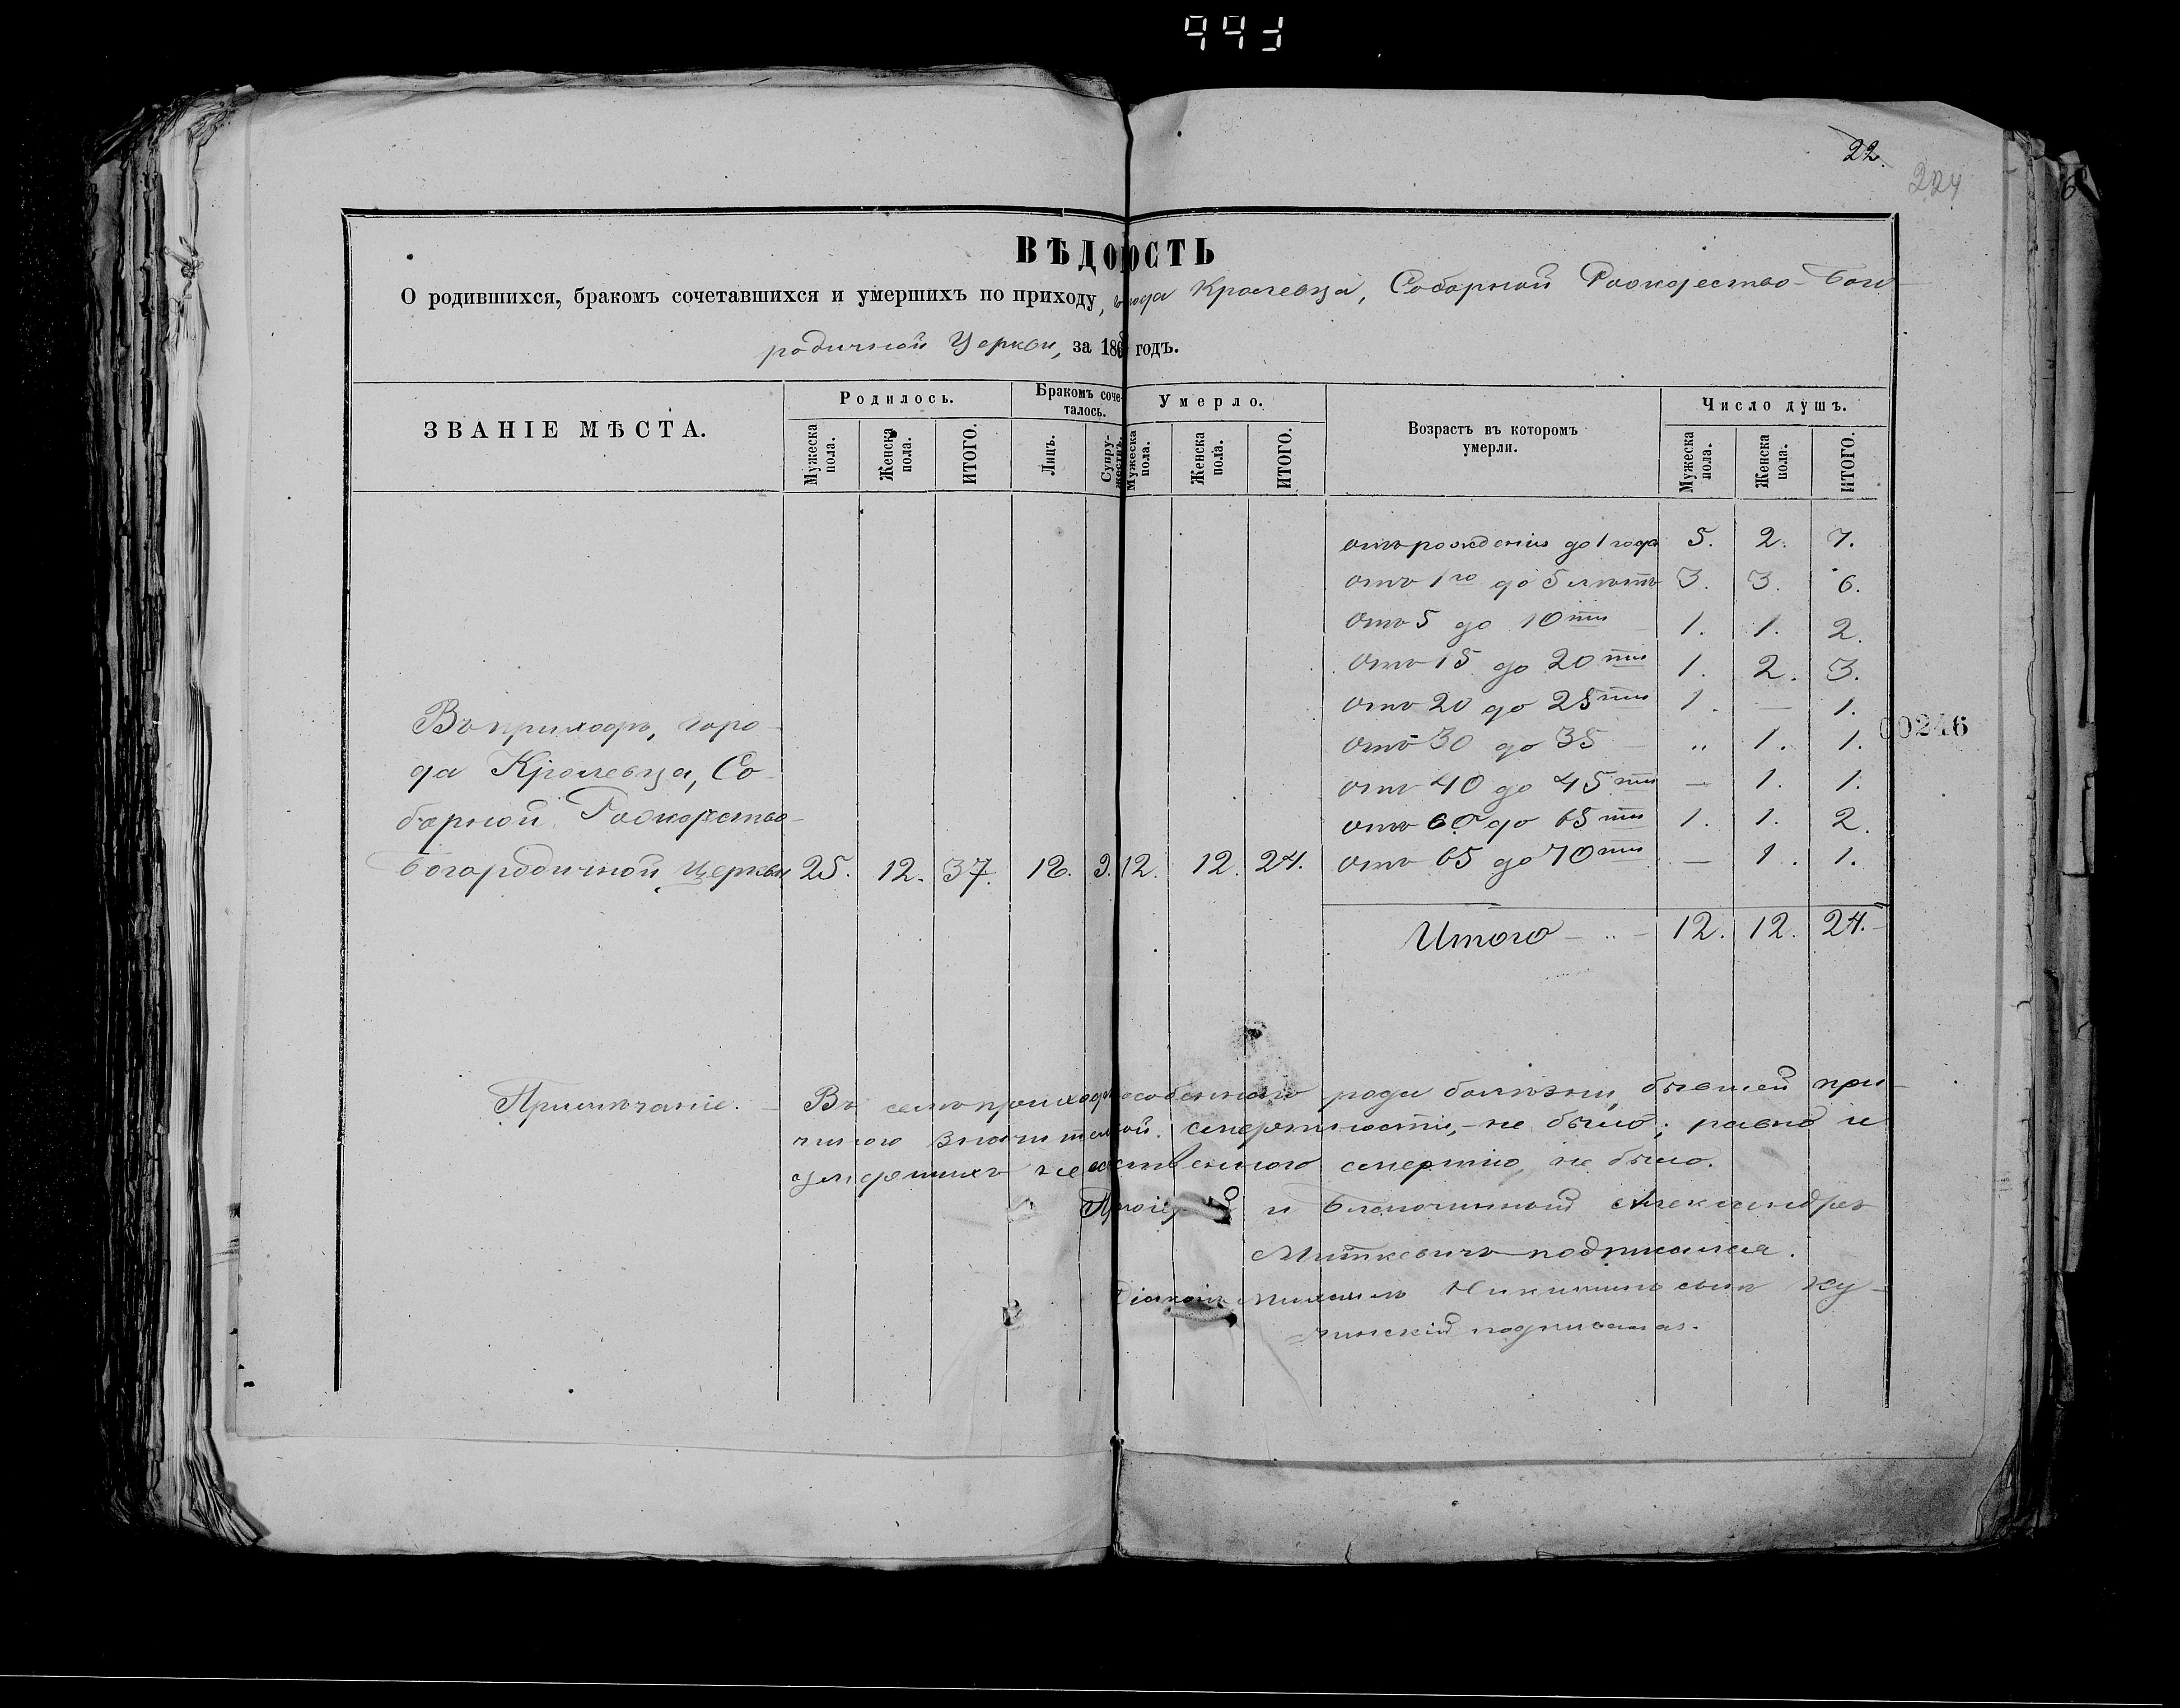 22.
224
ВѢДОМОСТЬ
О родившихся, бракомъ сочетавшихся и умершихъ по приходу, города Кролевца, Соборной Рождество-Бого-
родичной Церкви, за 186 годъ.
ЗВАНІЕ МѢСТА. Родилось. Бракомъ соче- Умерло. Возрастъ въ которомъ Число душъ.
талось. умерли.
Мужеска пола. Женска пола. ИТОГО. Лицъ. Супружествъ. Мужеска пола. Женска пола. ИТОГО. Мужеска пола. Женска пола. ИТОГО.
отъ рожденія до 1 года 5. 2. 7.
отъ 1го до 5 лѣтъ 3. 3. 6.
отъ 5 до 10ти 1. 1. 2.
отъ 15 до 20ти 1. 2. 3.
отъ 20 до 25ти 1. — 1.
отъ 30 до 35 — „ 1. 1.
отъ 40 до 45ти — 1. 1.
отъ 60 до 65ти 1. 1. 2.
отъ 65 до 70ти — 1. 1.
Итого — 12. 12. 24.
00246
Въ приходѣ, горо-
да Кролевца, Со-
борной Рождество-
Богородичной Церкви 25. 12. 37. 18. 9. 12. 12. 24.
Примѣчаніе. — Въ семъ приходѣ особеннаго рода болѣзни, бывшей при-
чиною значительной смертности, — не было; равно и
умершихъ неестественною смертію, не было.
и Благочинный Александръ
Миткевичъ подписался.
Діаконъ Михаилъ Никитинъ сынъ Ку-
чинскій подписался.